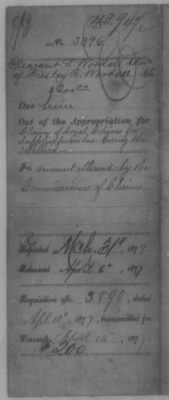 No. 3896
Pleasant L. Woodall Admr
of Presley R. Woodall
$200.00
Due him
Out of the Appropriation for
Claims of Loyal Citizens for
supplies furnished during the
rebellion
For amount allowed by the
Commissioners of Claims.
Reported Mch 31st 1877
Returned April 6th 1877
Requisition No. 3890, dated
Apl 10th 1877, transmitted for
Warrant April 10th 1877
$200